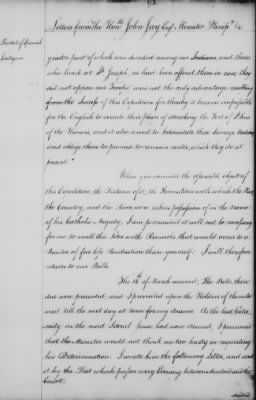 Letters from the Honble John Jay Esqr Minister Plenipo &c.
greater part of which was divided among our Indians, and those
who lived at St Joseph, as had been offered them in case they
did not oppose our Troops was not the only advantage resulting
from the Success of this Expedition for thereby it became impossible
for the English to execute their plan of attacking the Fort of St Louis
of the Illinois, and it also served to intimidate these Savage Nations
and oblige them to promise to remain neuter, which they do at
present."
When you consider the ostensible object of
this Expedition, the Distance of it, the Formalities with which the
the Country, and the River were taken possession of in the name
of his Catholic Majesty, I am persuaded it will not be necessary
for me to swell this Letter with Remarks that would occur to a
Reader of far less Penetration than yourself. I will therefore
return to our Bills.
The 14th of March arrived, The Bills then
due were presented, and I prevailed upon the Holders of them to
wait till the next day at noon for my answer. As the last Extre-
mity in the most Literal sense had now arrived, I presumed
that the Minister would not think me too hasty in requesting
his Determination. I wrote him the following Letter, and sent
it by the Post which passes every Evening between Madrid and the
Court.
Madrid